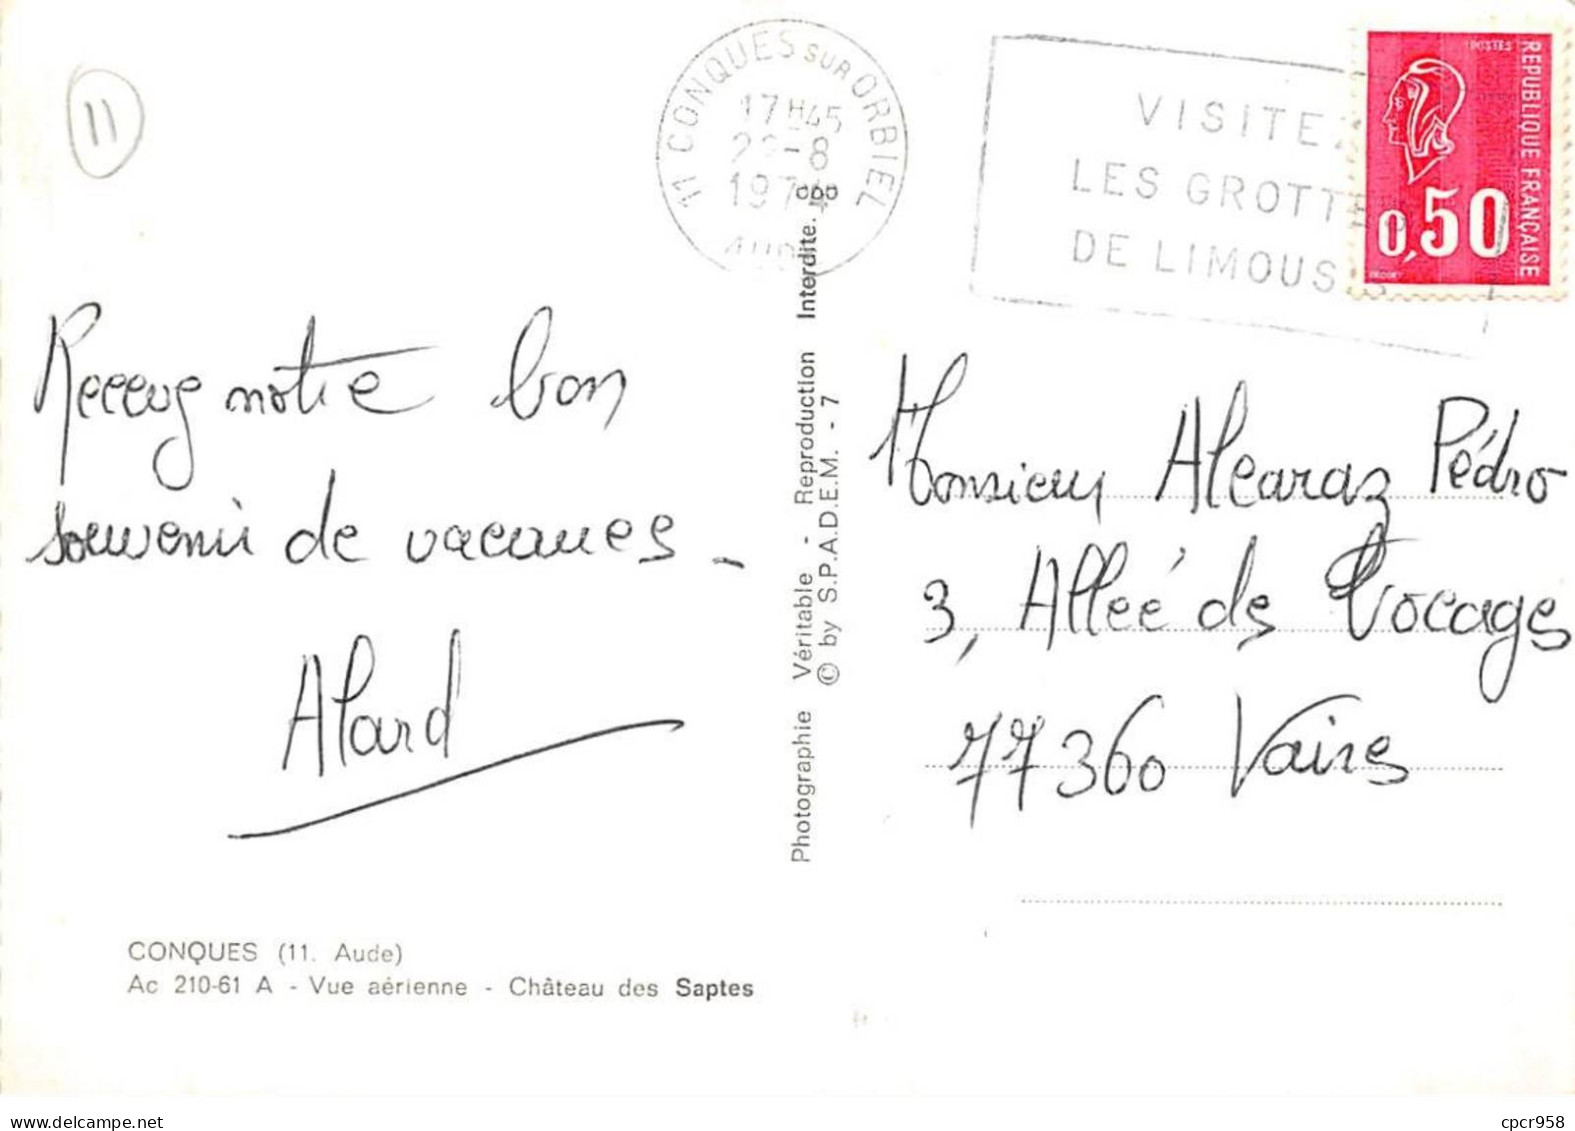 11
11 CONQUES SUR ORBIEL
17H45
-8
1974
AUDE
VISITEZ
LES GROTTES
DE LIMOUSIS
POSTES
REPUBLIQUE FRANÇAISE
0,50
Recevez notre bon
souvenir de vacances -
Alard
Photographie Véritable - Reproduction Interdite.
© by S.P.A.D.E.M. - 7
Monsieur Alcaraz Pédro
3, Alleé des Bocages
77360 Vaires
CONQUES (11. Aude)
Ac 210-61 A - Vue aérienne - Château des Saptes
cpcr958